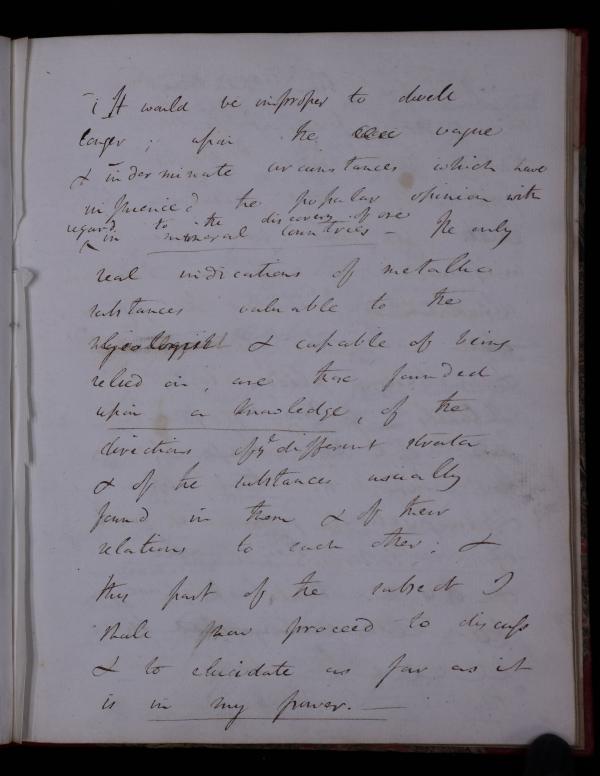 It would be improper to dwell
longer ; upon the vague
& indeterminate circumstances which have
influenced the popular opinion with
regard to the discovery of ore
in mineral countries – The only
real indications of metallic
substances valuable to the
Geologist & capable of being
relied on, are those founded
upon a knowledge, of the
directions of ye different strata
& of the substances usually
found in them & of their
relations to each other; &
this part of the subject I
shall now proceed to discuss
& to elucidate as far as it
is in my power. —